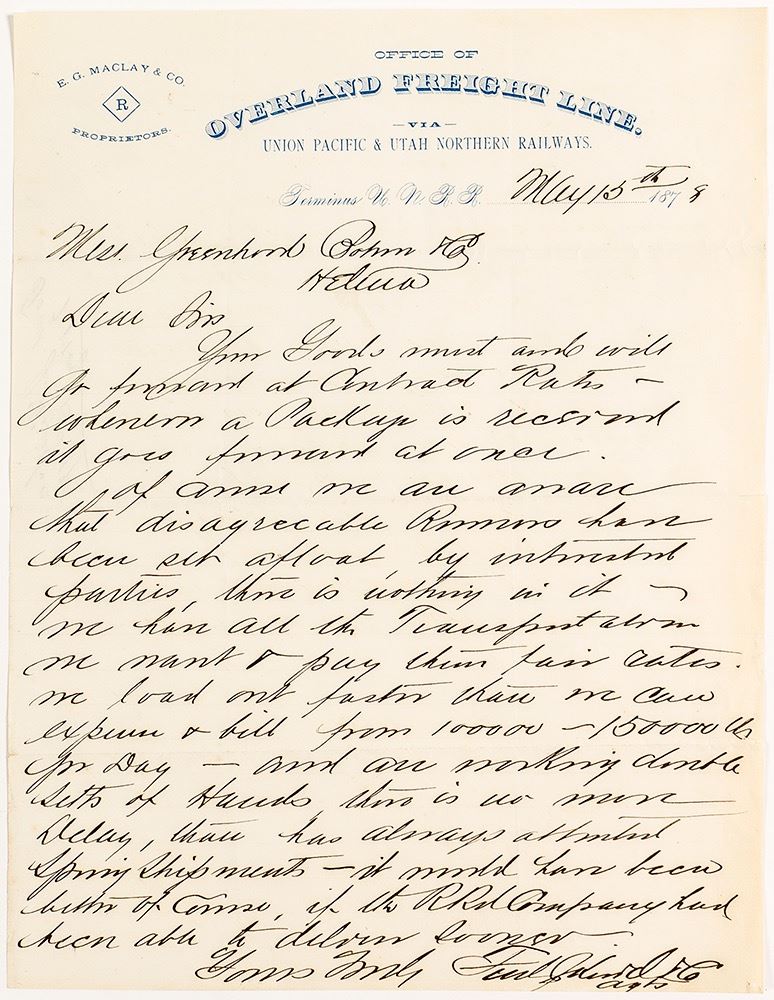 E. G. MACLAY & CO.
R
PROPRIETORS.
OFFICE OF
OVERLAND FREIGHT LINE.
—VIA—
UNION PACIFIC & UTAH NORTHERN RAILWAYS.
Terminus U. N. R. R. May 15th 1878
Mess. Greenhood Bohm & Co
Helena
Dear Sirs
Your Goods must and will
go forward at Contract Rates —
whenever a Package is received
it goes forward at once.
Of course we are aware
that disagreeable Rumors have
been set afloat by interested
parties, there is nothing in it —
we have all the Transportation
we want & pay them fair rates.
we load out faster than we can
expense & bill from 100000 — 150000 lbs
pr Day — and are working double
setts of Hands, there is no more
Delay, than has always attended
Spring Shipments — it would have been
better of course, if the RRd Company had
been able to deliver sooner
Yours Truly
agts